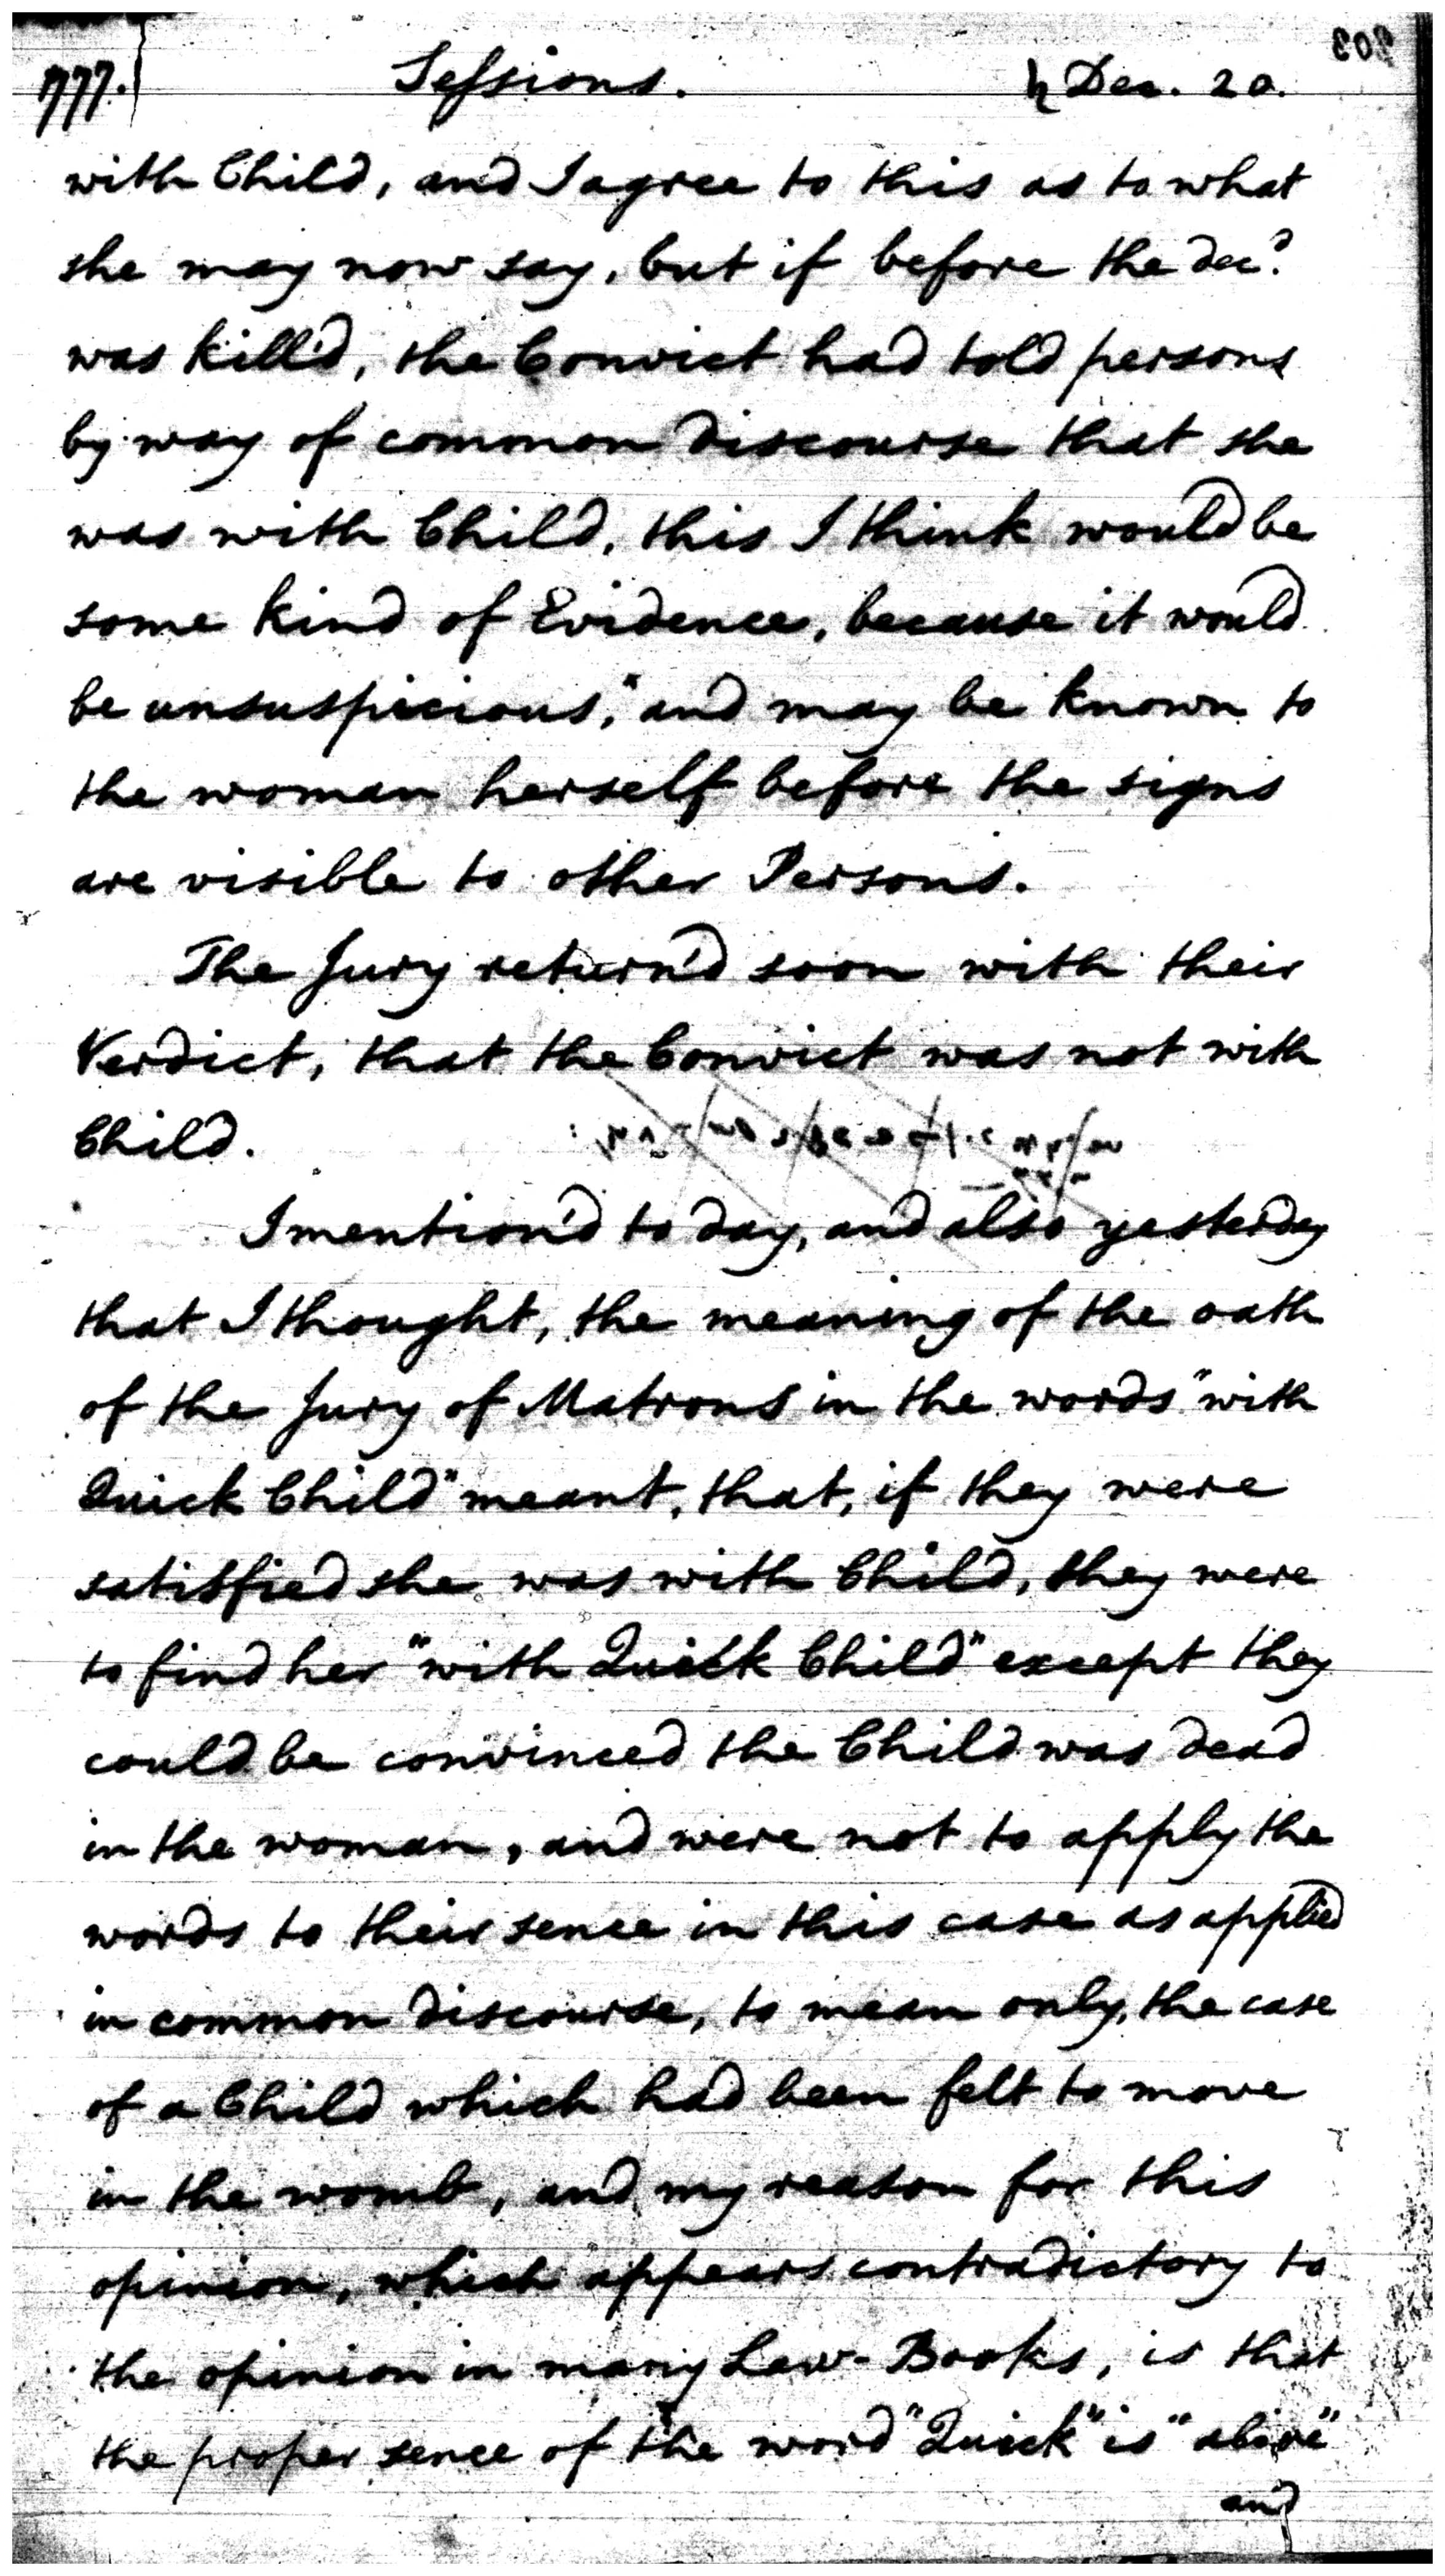 777. Sessions. ♄ Dec. 20.
with Child, and I agree to this as to what
she may now say, but if before the decd.
was kill'd, the Convict had told persons
by way of common discourse that she
was with Child, this I think would be
some kind of Evidence, because it would
be unsuspicious," and may be known to
the woman herself before the signs
are visible to other Persons.
The Jury return'd soon with their
Verdict, that the Convict was not with
Child.
I mention'd to day, and also yesterday
that I thought, the meaning of the oath
of the Jury of Matrons in the words "with
Quick Child" meant, that, if they were
satisfied she was with Child, they were
to find her "with Quick Child" except they
could be convinced the Child was dead
in the woman, and were not to apply the
words to their sence in this case as applied
in common discourse, to mean only, the case
of a Child which had been felt to move
in the womb, and my reason for this
opinion, which appears contradictory to
the opinion in many Law-Books, is that
the proper sence of the word "Quick" is "alive"
and